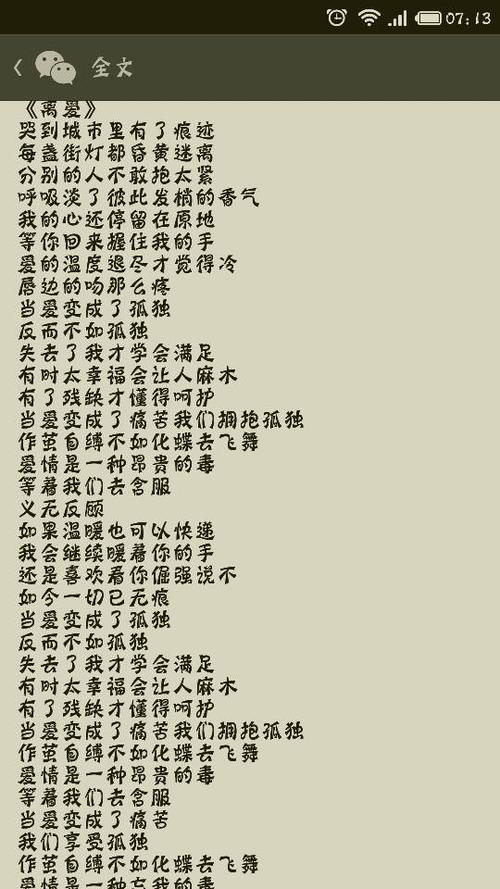 07:13
全文
《离爱》
哭到城市里有了痕迹
每盏街灯都昏黄迷离
分别的人不敢抱太紧
呼吸淡了彼此发梢的香气
我的心还停留在原地
等你回来握住我的手
爱的温度退尽才觉得冷
唇边的吻那么疼
当爱变成了孤独
反而不如孤独
失去了我才学会满足
有时太幸福会让人麻木
有了残缺才懂得呵护
当爱变成了痛苦我们拥抱孤独
作茧自缚不如化蝶去飞舞
爱情是一种昂贵的毒
等着我们去含服
义无反顾
如果温暖也可以快递
我会继续暖着你的手
还是喜欢看你倔强说不
如今一切已无痕
当爱变成了孤独
反而不如孤独
失去了我才学会满足
有时太幸福会让人麻木
有了残缺才懂得呵护
当爱变成了痛苦我们拥抱孤独
作茧自缚不如化蝶去飞舞
爱情是一种昂贵的毒
等着我们去含服
当爱变成了痛苦
我们享受孤独
作茧自缚不如化蝶去飞舞
爱情是一种忘我的毒